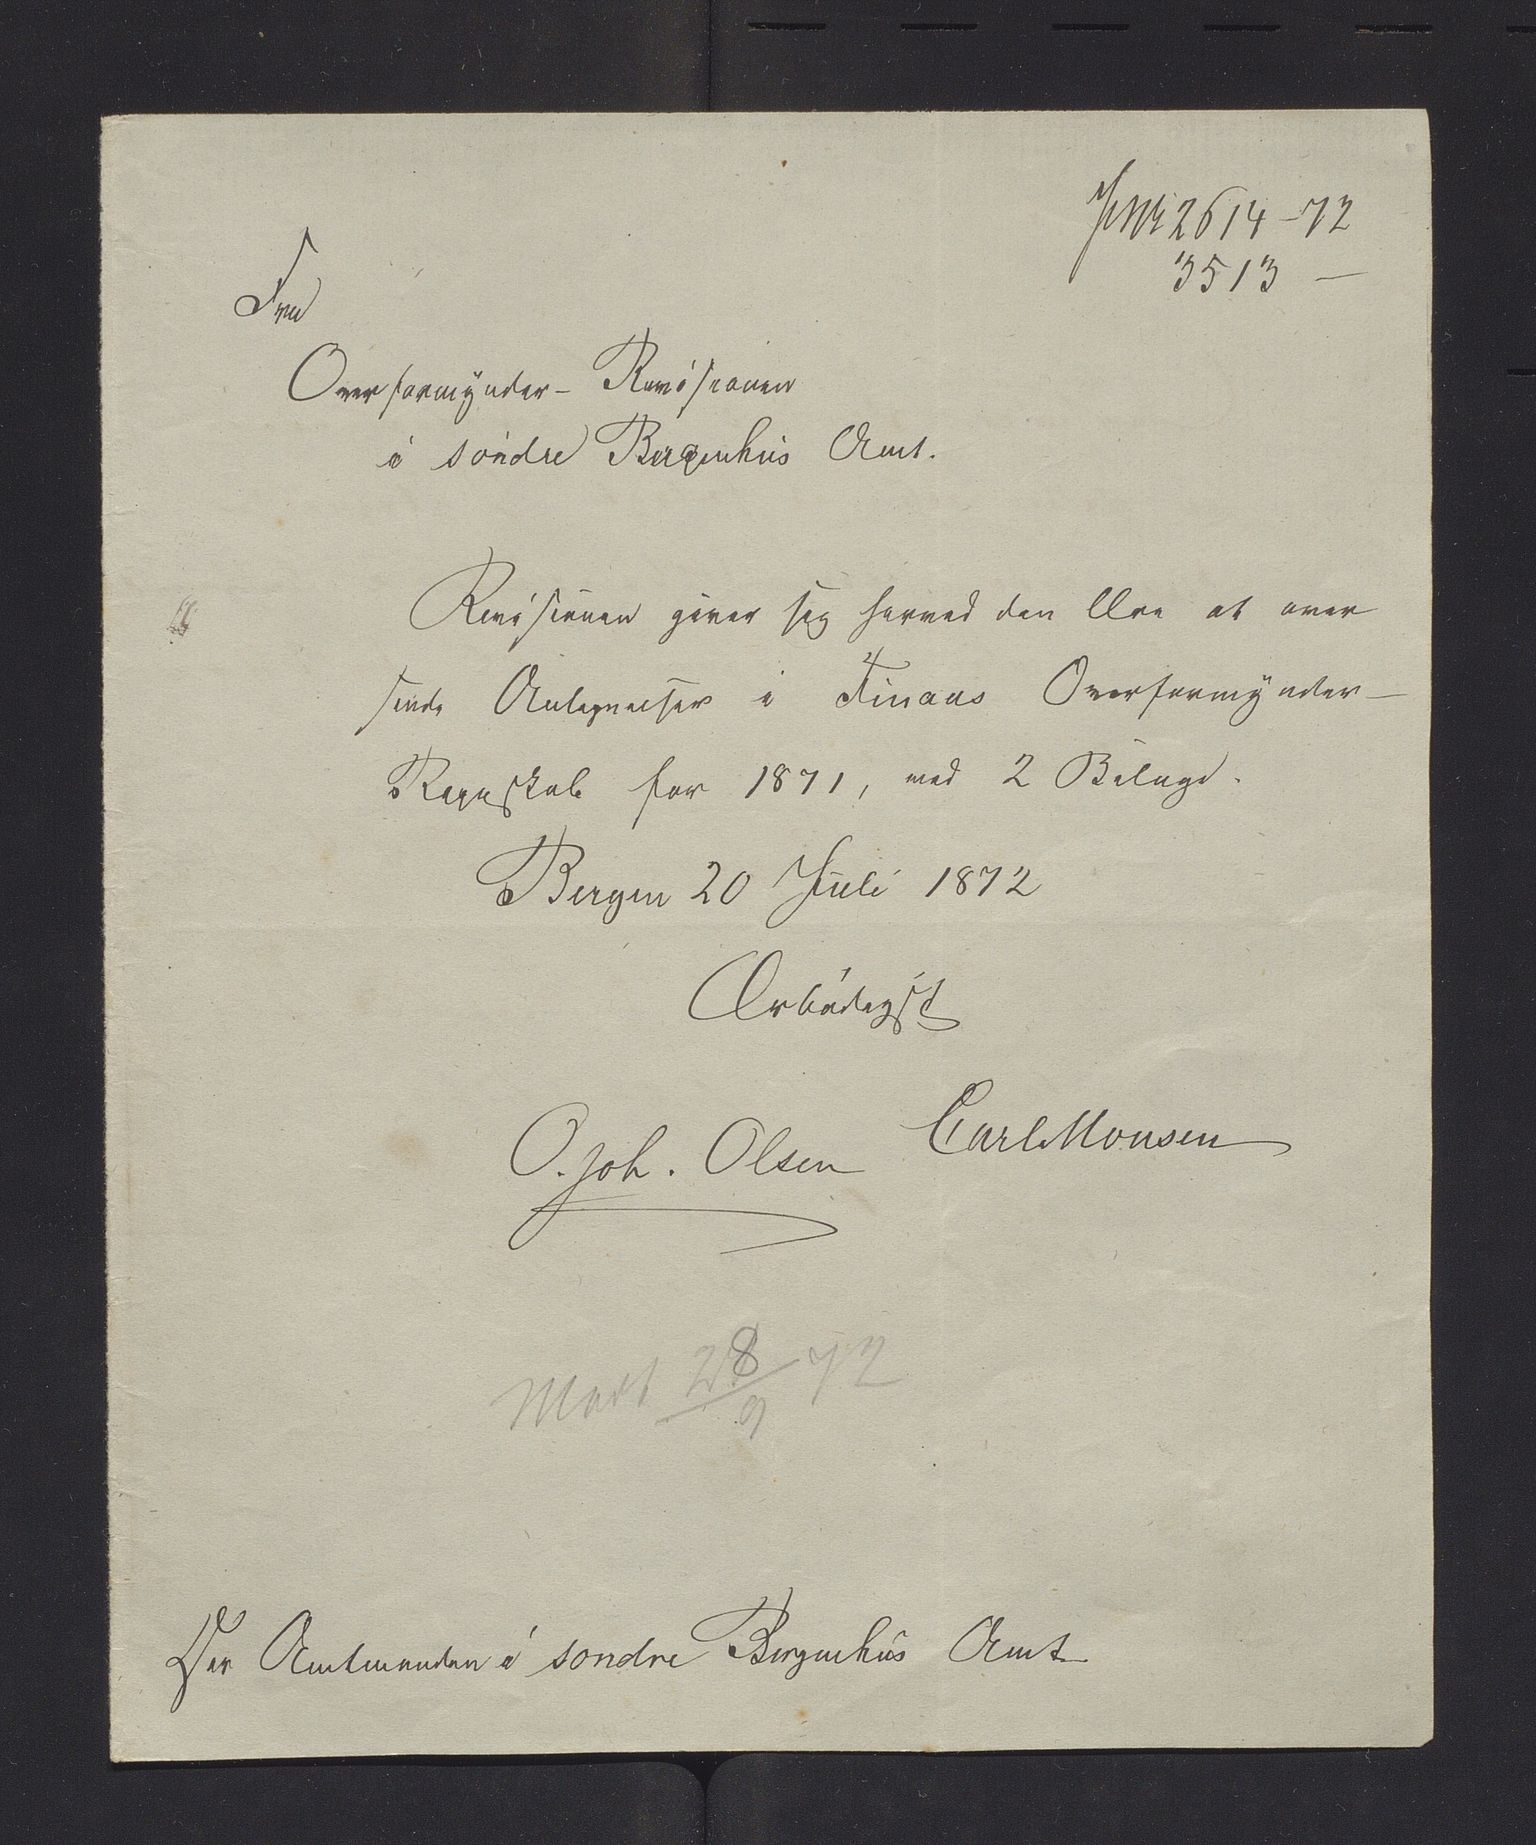 JNr 2614-72
3513 —
Fra
Overformynder- Revisionen
i søndre Bergenhus Amt.
Revisionen giver sig herved den Ære at over
sende Antegnelser i Finaas Overformynder-
Regnskab for 1871, med 2 Bilage.
Bergen 20 Juli 1872
Ærbødigst
O. Joh. Olsen Carl Monsen
28/9 72
Her Amtmanden i sondre Bergenhus Amt